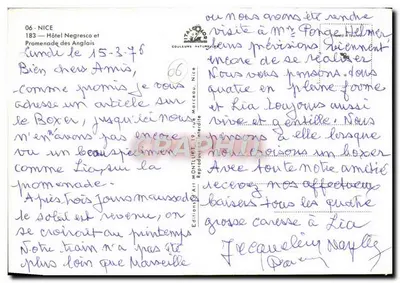 06 - NICE
183 — Hôtel Negresco et
Promenade des Anglais
Lundi le 15-3-76
Bien chers Amis,
comme promis je vous
adresse un article sur
le Boxer, jusqu'ici nous
n'en avons pas encore
vu un beau spécimen
comme Lia sur la
promenade -
Après trois jours maussades
le soleil est revenu, on
se croirait au printemps
Notre train n'a pas été
plus loin que Marseille
66
Editions d'Art MONTLUET, rue Marceau, Nice
Reproduction interdite
ou nous avons été rendre
visite à Mme Ponge Helmer
leurs prévisions viennent
encore de se réaliser
Nous vous pensons tous
quatre en pleine forme
et Lia toujours aussi
vive et gentille. Nous
pensons à elle lorsque
nous croisons un boxer
Avec toute notre amitié
recevez nos affectueux
baisers tous les quatre
grosse caresse à Lia